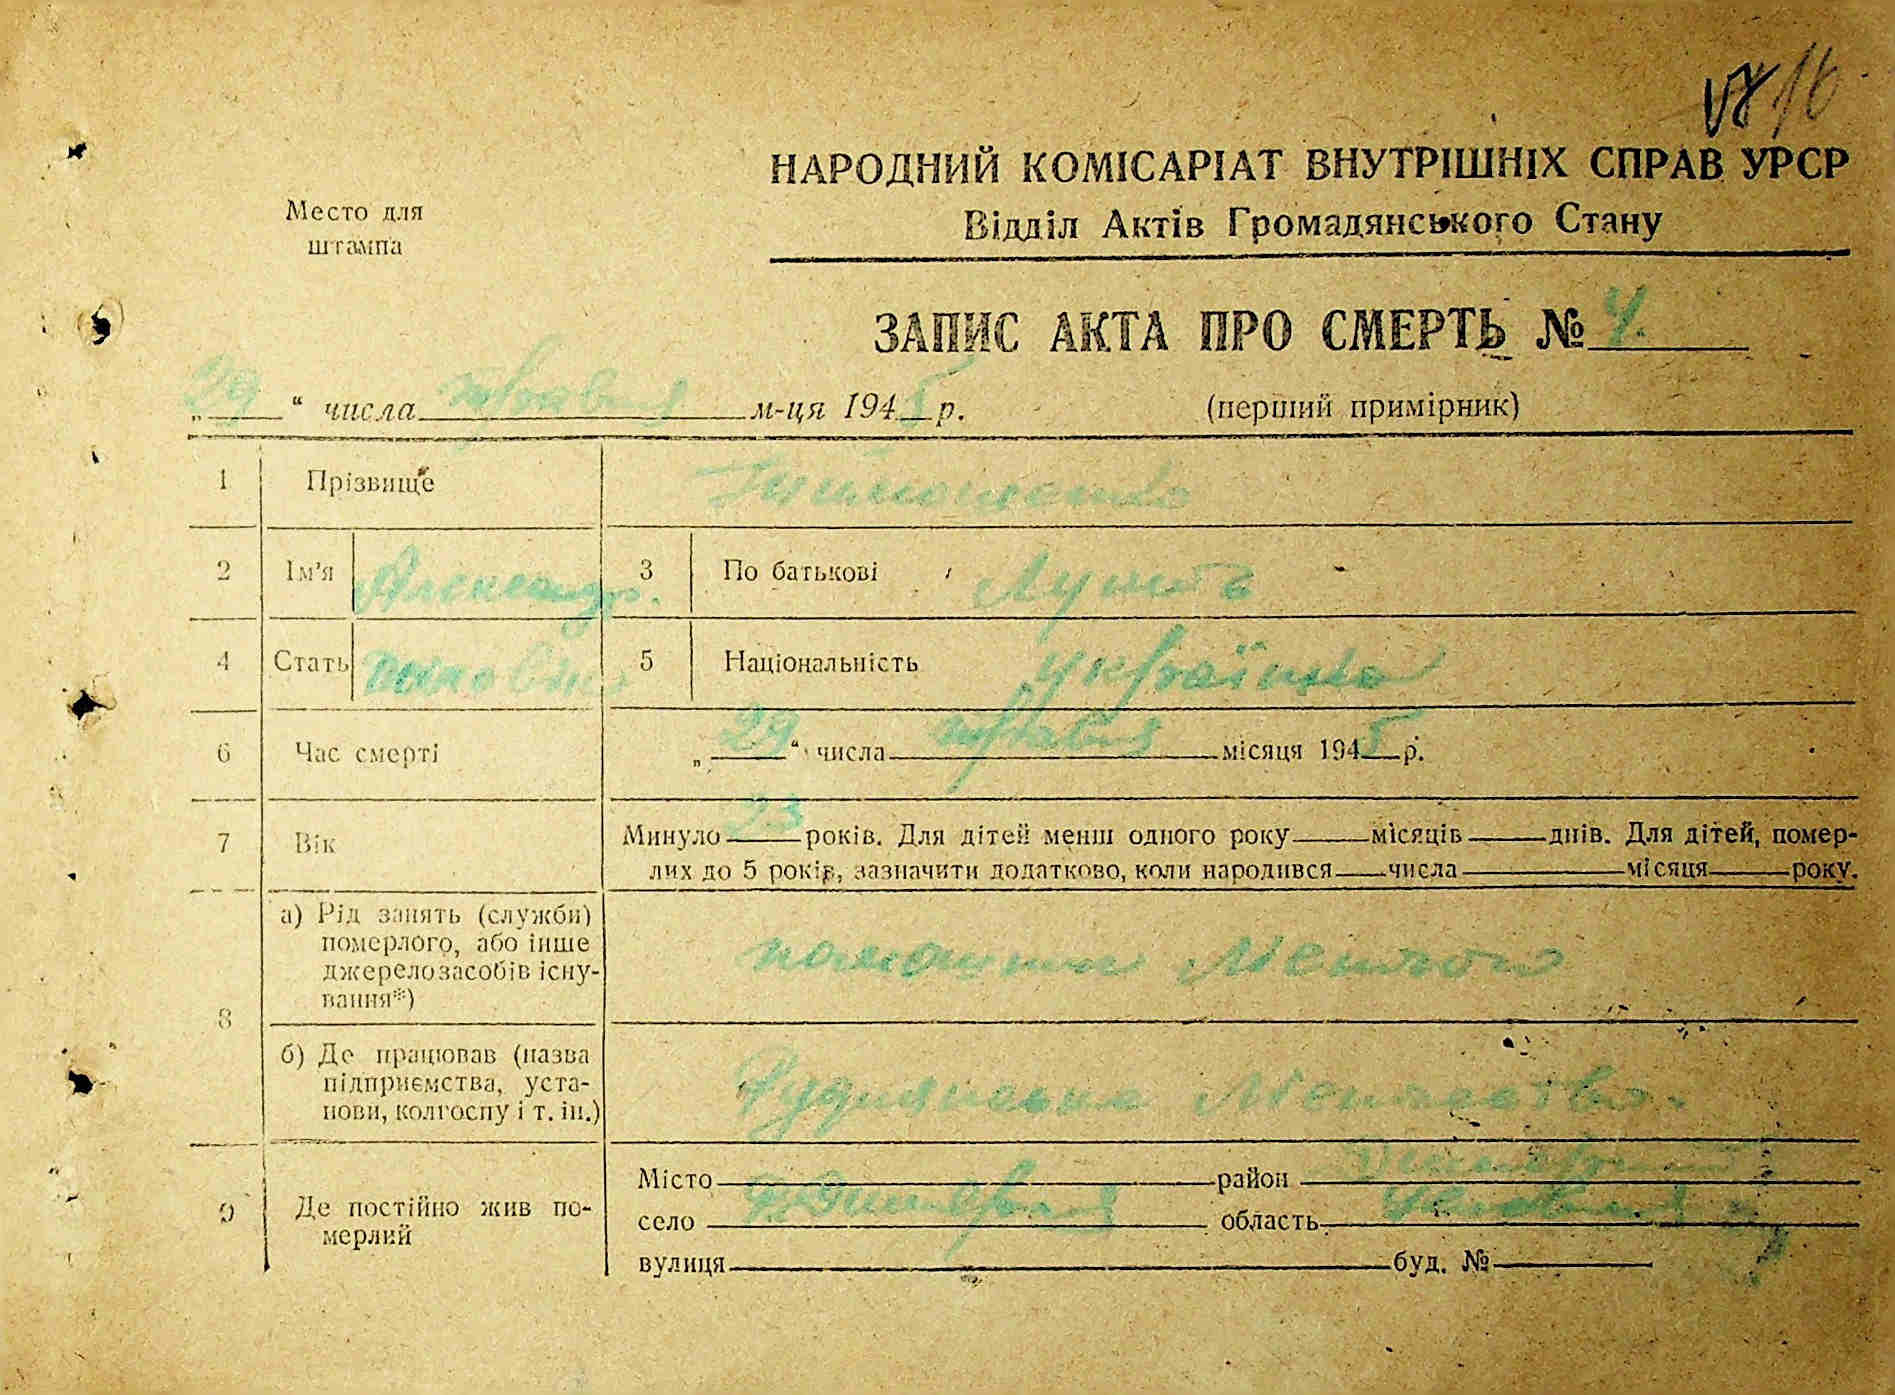 16
НАРОДНИЙ КОМІСАРІАТ ВНУТРІШНІХ СПРАВ УРСР
Место для
штампа
Відділ Актів Громадянського Стану
ЗАПИС АКТА ПРО СМЕРТЬ № 4.
„29“ числа травня м-ця 1945 р. (перший примірник)
1 Прізвище Тимошенко
2 Ім'я Александр. 3 По батькові
4 Стать чоловік 5 Національність українец
6 Час смерті „29“ числа травня місяця 1945 р.
7 Вік Минуло 23 років. Для дітей менш одного року місяців днів. Для дітей, помер-
лих до 5 років, зазначити додатково, коли народився числа місяця року.
8 а) Рід занять (служби)
померлого, або інше
джерело засобів існу-
вання*)
б) Де працював (назва
підприємства, уста-
нови, колгоспу і т. ін.)
9 Де постійно жив по-
мерлий
Місто район
село область
вулиця буд. №